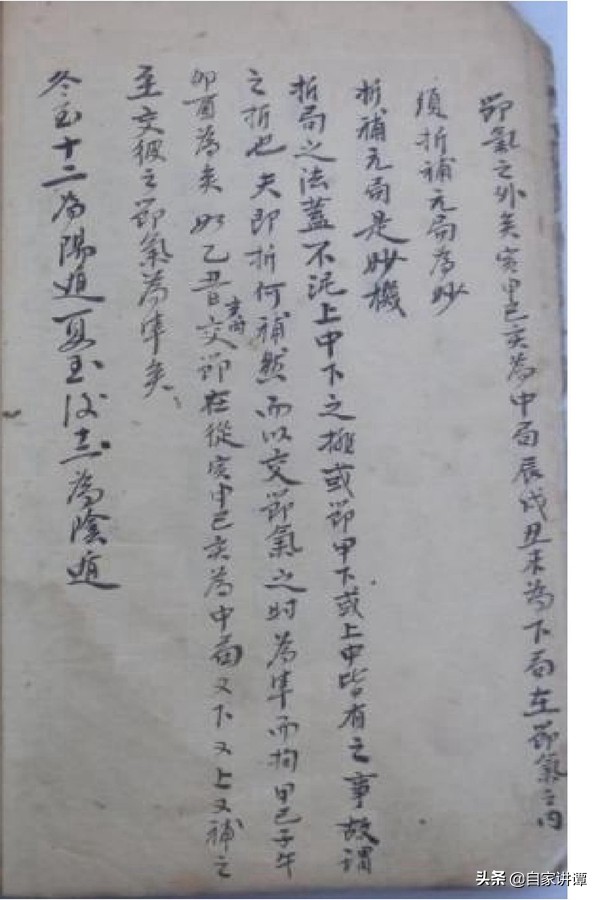 節氣之外矣寅申巳亥為中局辰戌丑未為下局在節氣之內
須折補元局為妙
折補元局是妙機
折局之法蓋不泥上中下之推或節甲下或上中皆有之事故謂
之折也夫即折何補然而以交節氣之時為準而拘甲己子午
卯酉為矣如乙酉日亥時交節在從寅申巳亥為中局又下又上又補之
至交彼之節氣為準矣
冬至十二為陽遁夏至後十二為陰遁
头条 @自家讲谭